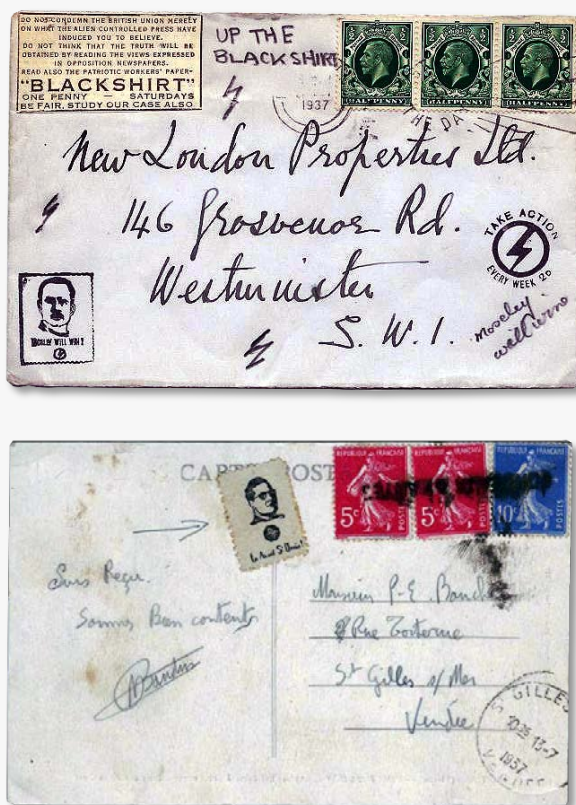 DO NOT CONDEMN THE BRITISH UNION MERELY
ON WHAT THE ALIEN CONTROLLED PRESS HAVE
INDUCED YOU TO BELIEVE.
DO NOT THINK THAT THE TRUTH WILL BE
OBTAINED BY READING THE VIEWS EXPRESSED
IN OPPOSITION NEWSPAPERS.
READ ALSO THE PATRIOTIC WORKERS' PAPER-
"BLACKSHIRT"
ONE PENNY — SATURDAYS
BE FAIR, STUDY OUR CASE ALSO
UP THE
BLACKSHIRT
1937
HALFPENNY
HALFPENNY
HALFPENNY
THE
New London Properties Ltd.
146 Grosvenor Rd.
Westminster
S.W.1.
TAKE ACTION
EVERY WEEK
MOSLEY WILL WIN
Moseley
will win
CARTE POST
REPUBLIQUE FRANÇAISE
5c
POSTES
REPUBLIQUE FRANÇAISE
5c
POSTES
REPUBLIQUE FRANÇAISE
10c
POSTES
Suis Reçu.
Sommes Bien contents
Monsieur P-E.
Rue
St Gilles s/ Mer
Vendée
ST GILLES
13-7
1937